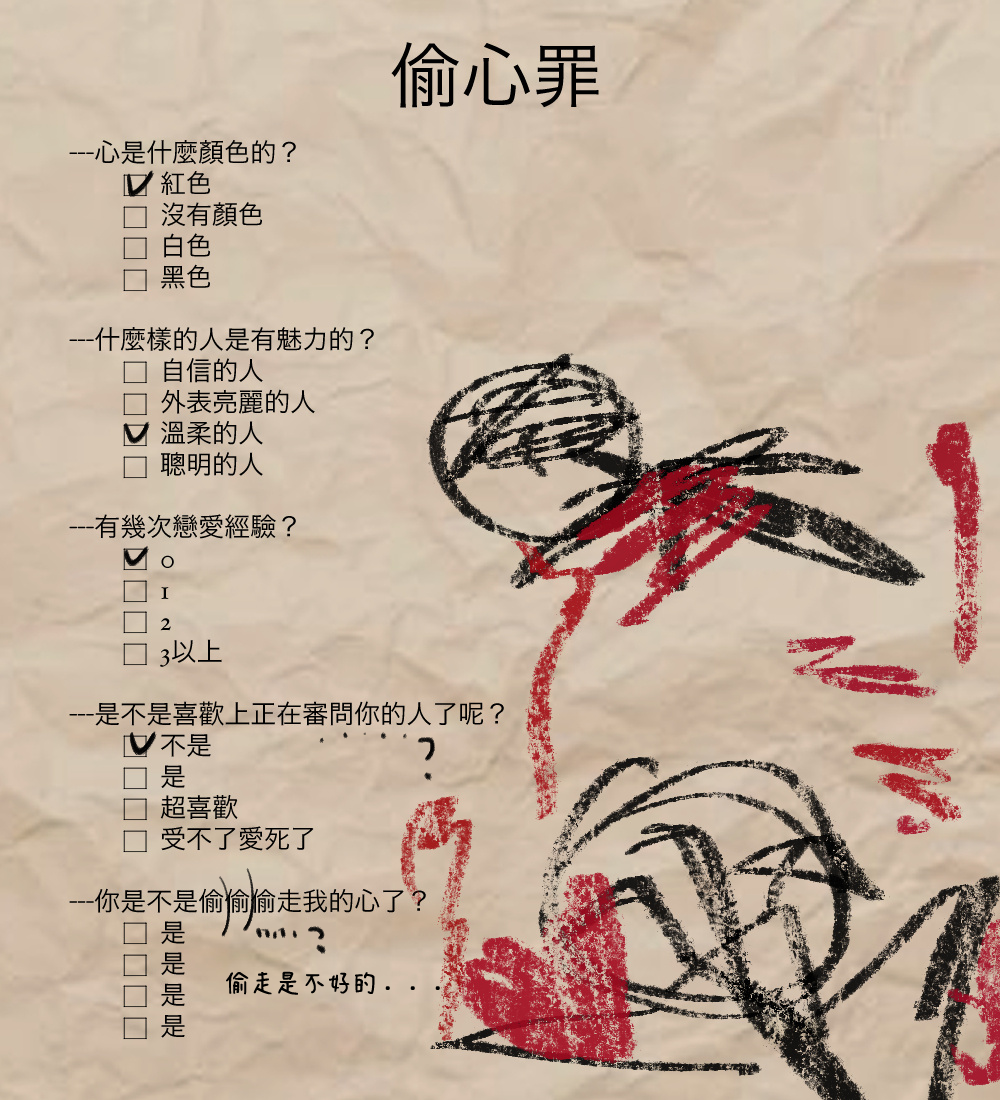 偷心罪
---心是什麼顏色的？
紅色
沒有顏色
白色
黑色
---什麼樣的人是有魅力的？
自信的人
外表亮麗的人
溫柔的人
聰明的人
---有幾次戀愛經驗？
0
1
2
3以上
---是不是喜歡上正在審問你的人了呢？
不是
.....?
是
超喜歡
受不了愛死了
---你是不是偷偷偷走我的心了？
是
.....?
是
是
偷走是不好的...
是